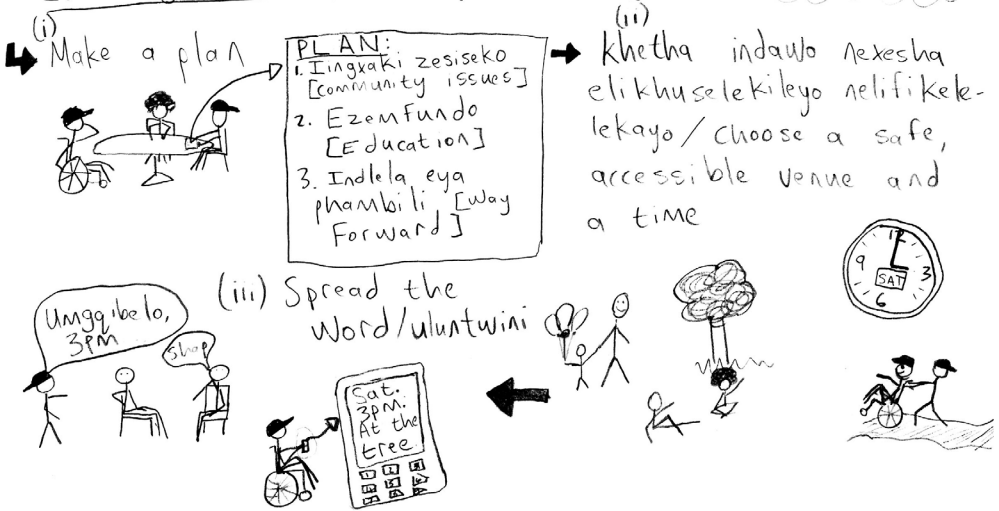 (i)
Make a plan
PLAN:
1. Iingxaki zesiseko
[community issues]
2. Ezemfundo
[Education]
3. Indlela eya
phambili [Way
Forward]
(ii)
khetha indawo nexesha
elikhuselekileyo nelifikele-
lekayo/choose a safe,
accessible venue and
a time
12
9
3
SAT
6
(iii) Spread the
Word/uluntwini
Umgqibelo,
3pm
Shap
Sat.
3PM.
At the
tree
1 2